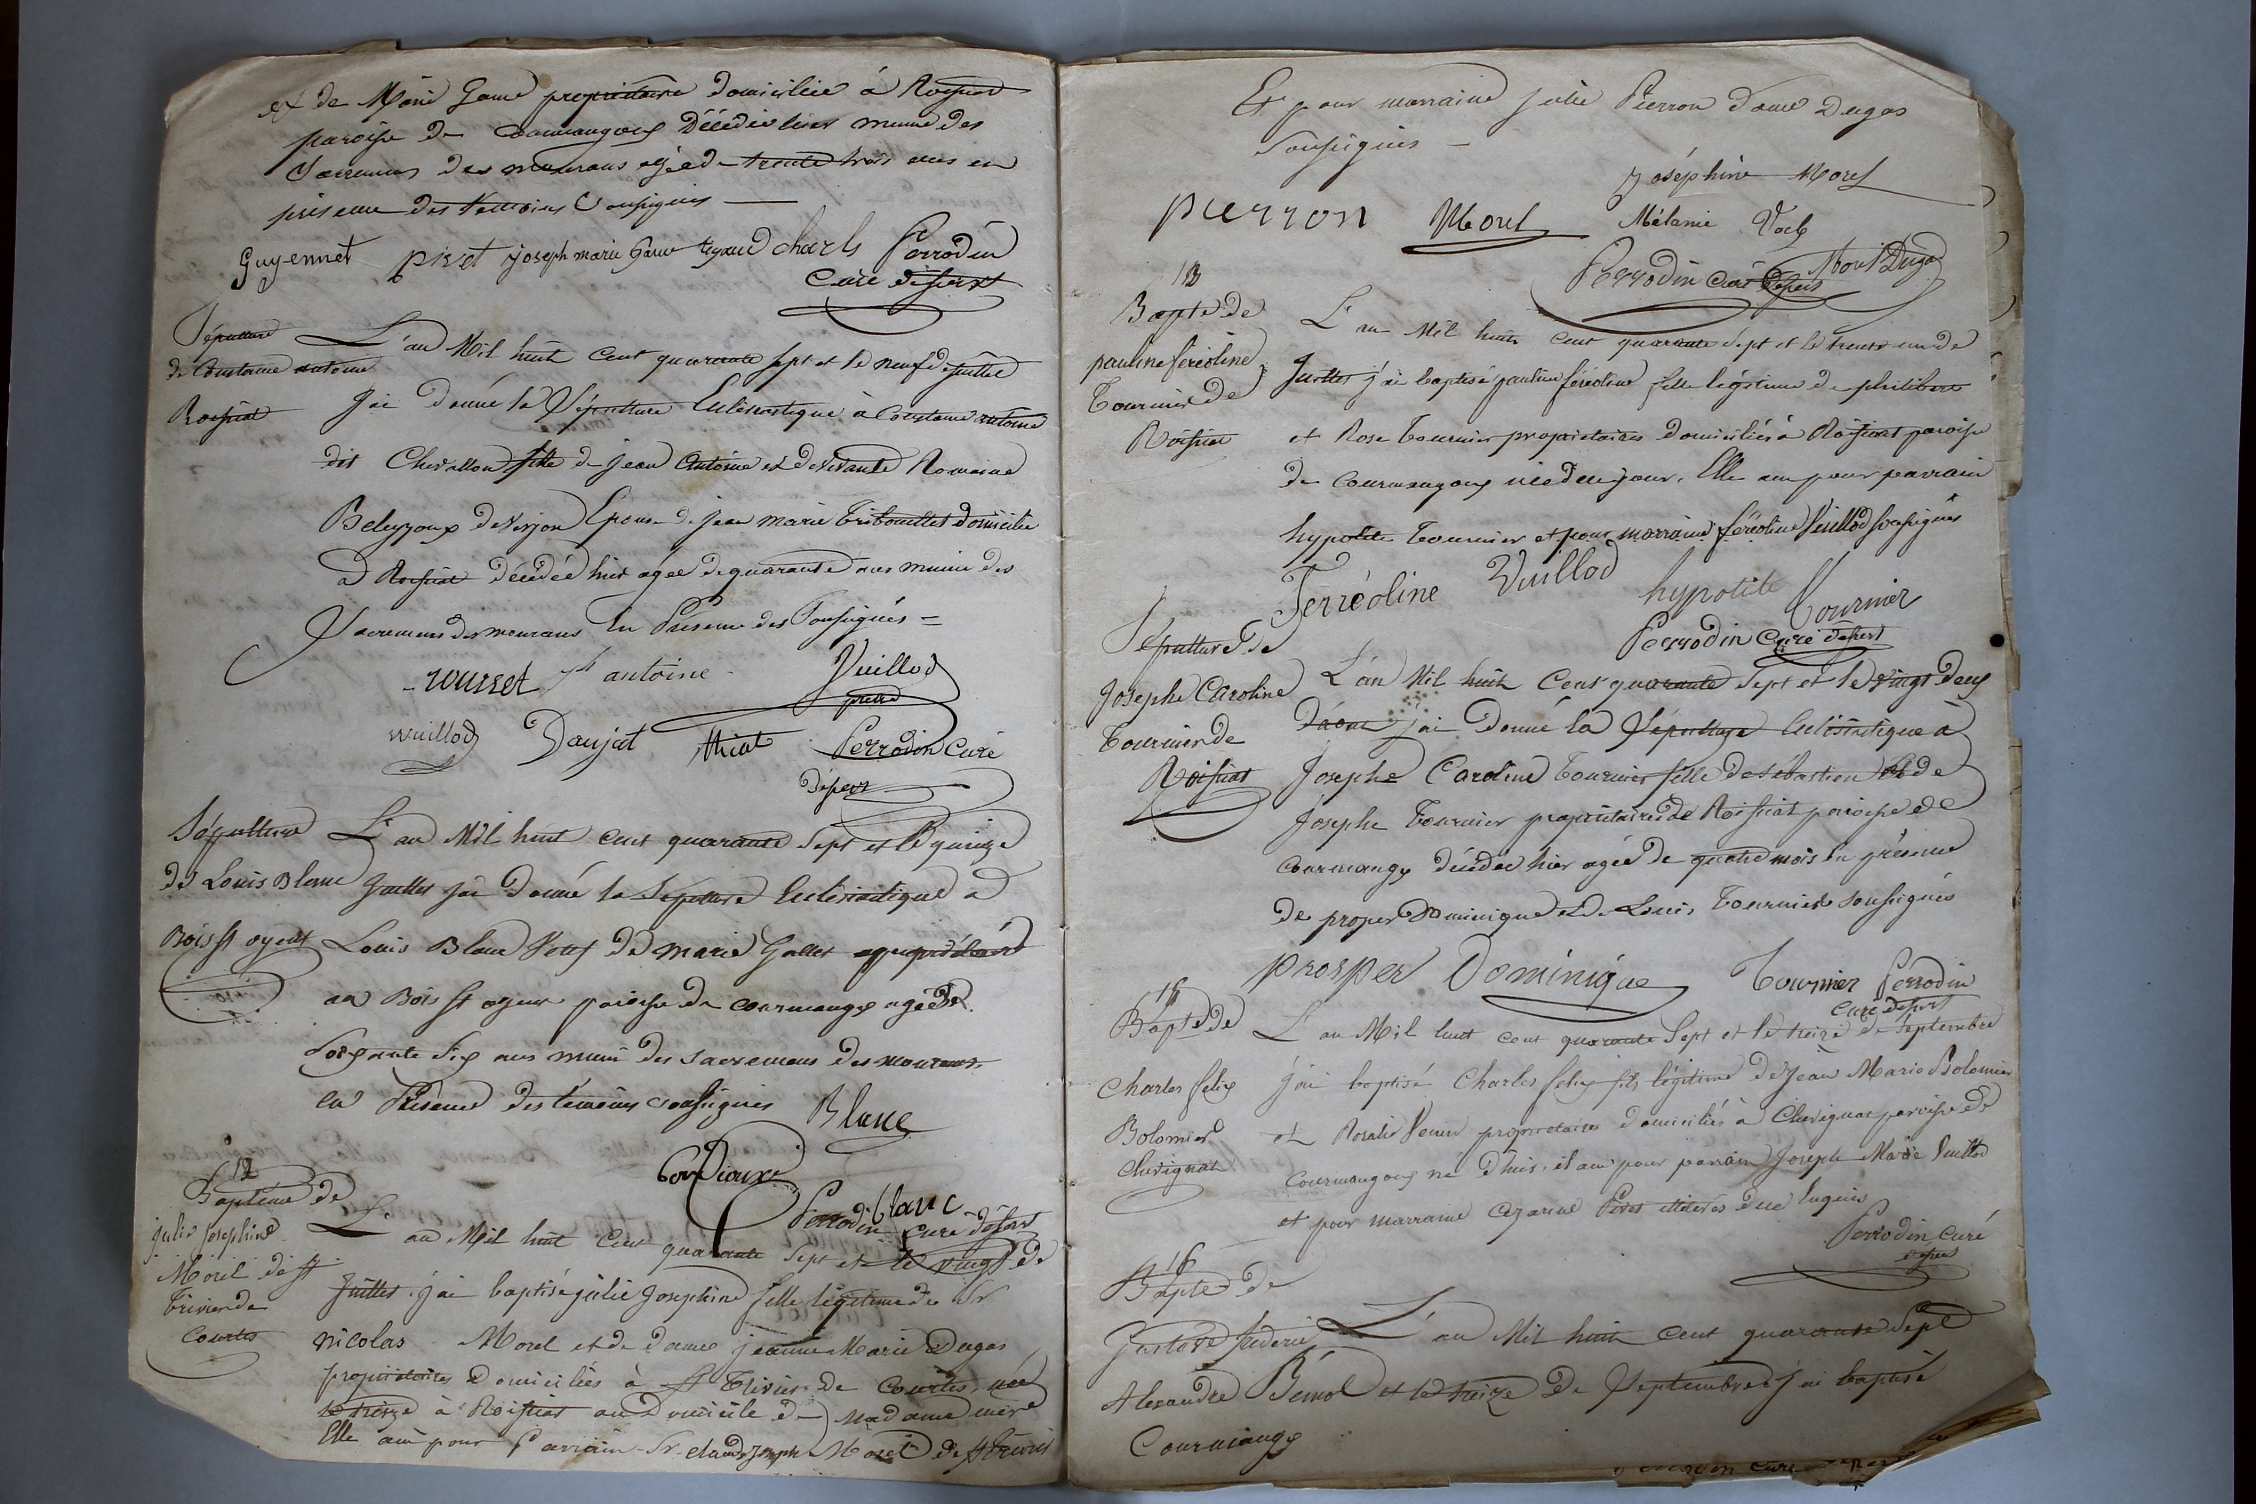 et de Marie Game propriétaire domiciliée à Roissiat
paroisse de Courmangoux Décédée hier munie des
Sacremens des mourans agée de trente trois ans en
présence des témoins soussignés
Guyennet piret joseph marie Game charls Perrodin
Curé desservt
Sépulture
de Constance antoine
Roissiat
L'an Mil huit cent quarante sept et le neuf de juillet
J'ai Donné la Sépulture Eclésiastique à Constance antoine
dit Chevallon fille de jean Antoine et de vivante Romaine
de verjon Epouse de jean marie Tribouillet domicilié
à Roissiat décédée hier agée de quarante ans munie des
Sacremens des mourans En Présence des Soussignés =
rousset antoine Vuillod
vuillod Daujat thiat Perrodin Curé
desservt
Sépulture
de Louis Blanc
Bois st oyent
L'an Mil huit cent quarante Sept et le quinze
juillet jai Donné la Sépulture Eclésiastique à
Louis Blanc Veuf de Marie Gallet
au Bois st oyent paroisse de courmangoux agé de
Soixante Six ans muni des sacremens des mourans
en Présence des témoins soussignés Blanc
blanc
Perrodin curé desservt
12
Baptême de
julie josephine
Morel de st
trivier de
Courtes
L'an Mil huit Cent quarante Sept et le vingt de
Juillet. j'ai baptisé julie Josephine fille légitime de Sr
nicolas Morel et de dame jeanne Marie Dugas
propriétaires Domiciliés à st Trivier de Courtes née
le treize à Roissiat au Domicile de Madame mère
Elle a eu pour Parrain Sr claude joseph Morel de st trivier
Et pour marraine julie Pierron dame Dugas
Soussignés
Joséphine Morel
pierron Morel Mélanie
Perrodin Curé desservt Morel Dugas
13
Bapte de
pauline féréoline
Tournier de
Roissiat
L'an Mil huit Cent quarante Sept et le trente un de
Juillet j'ai baptisé pauline féréoline fille légitime de philibert
et Rose Tournier propriétaires domiciliés à Roissiat paroisse
de Courmangoux née du jour. Elle a eu pour parrain
hypolite Tournier et pour marraine féréoline Vuillod soussignés
Ferréoline Vuillod hypolite Tournier
Perrodin Curé desservt
Sépulture de
Josephe Caroline
Tournier de
Roissiat
L'an Mil huit Cent quarante Sept et le vingt Deux
D'aout j'ai Donné la Sépulture Eclésiastique à
Josephe Caroline Tournier fille de sébastien et de
Josephe Tournier propriétaires de Roissiat paroisse de
Courmangx décédée hier agée de quatre mois En présence
de prosper Dominique et de Louis Tournier soussignés
prosper Dominique Tournier Perrodin
Curé desservt
15
Bapte de
Charles felix
Bolomier
Chevignat
L'an Mil huit cent quarante Sept et le treize de Septembre
j'ai baptisé Charles felix fils légitime de Jean Marie Bolomier
et Rosalie propriétaires domiciliés à Chevignat paroisse de
Courmangoux né d'hier. il a eu pour parrain Joseph Marie Vuillod
et pour marraine Cezarine Piret illiteres due Enquis
Perrodin Curé
desservt
16
Bapte de
Gustave frederic
Alexandre Bénol
Courmangx
L'an Mil huit Cent quarante Sept
et le treize de Septembre j'ai baptisé